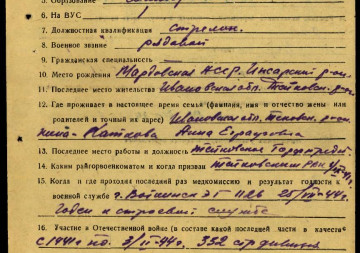 5. Образование
6. На ВУС 1
7. Должностная квалификация Стрелок.
8. Военное звание рядовой
9. Гражданская специальность
10. Место рождения Мордовская АССР. Инсарский р-он.
11. Последнее место жительства Ивановская обл. р-он.
12. Где проживает в настоящее время семья (фамилия, имя и отчество жены или
родителей и точный их адрес) Ивановская обл. р-он.
Анна
13. Последнее место работы и должность
14. Каким райгорвоенкоматом и когда призван РВК
15. Когда и где проходил раз медкомиссию и результат годности в
военной службе г. ЭГ 25/XII-44г.
Годен к строевой службе
16. Участие в Отечественной войне (в составе какой последней части в качестве
с 1941 по 3/II-44г. 332 стр дивизия